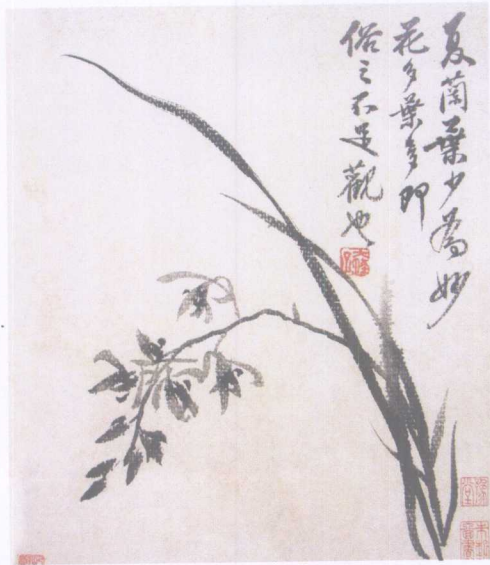 夏蘭葉少為妙
花多葉多即
俗之不足觀也